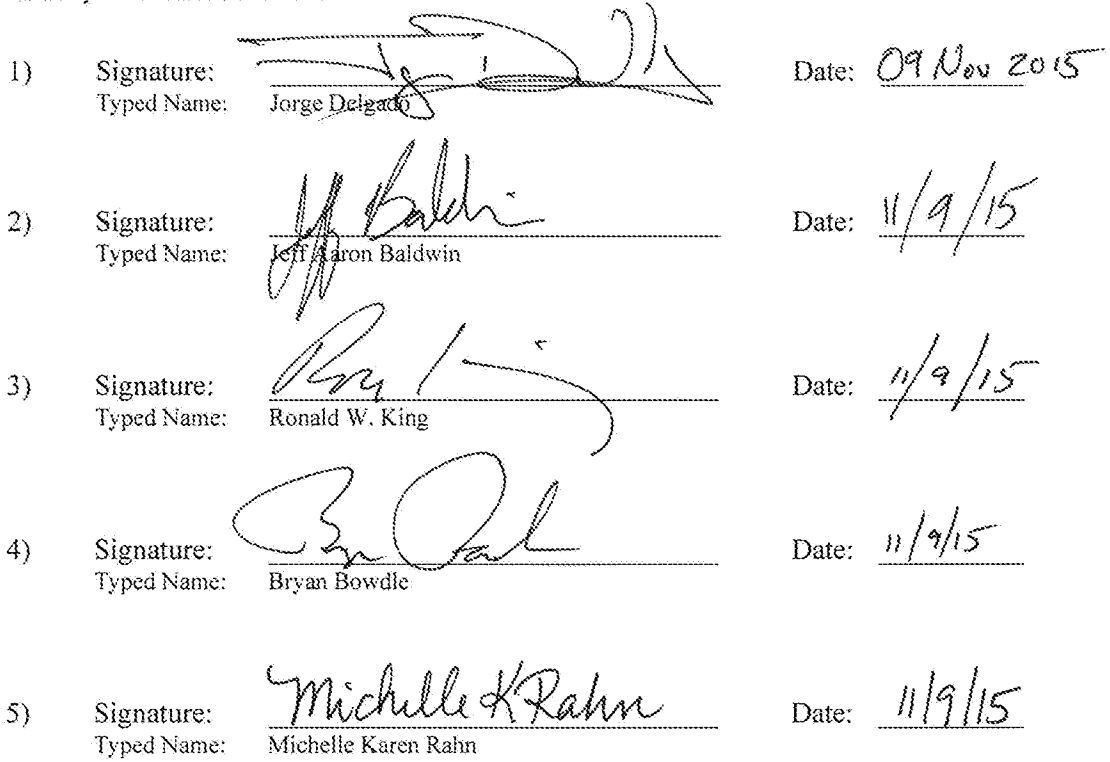 1) Signature: Date: 09 Nov 2015
Typed Name: Jorge Delgado
2) Signature: Jeff Baldwin Date: 11/9/15
Typed Name: Jeff Aaron Baldwin
3) Signature: Date: 11/9/15
Typed Name: Ronald W. King
4) Signature: Date: 11/9/15
Typed Name: Bryan Bowdle
5) Signature: Michelle K Rahn Date: 11/9/15
Typed Name: Michelle Karen Rahn